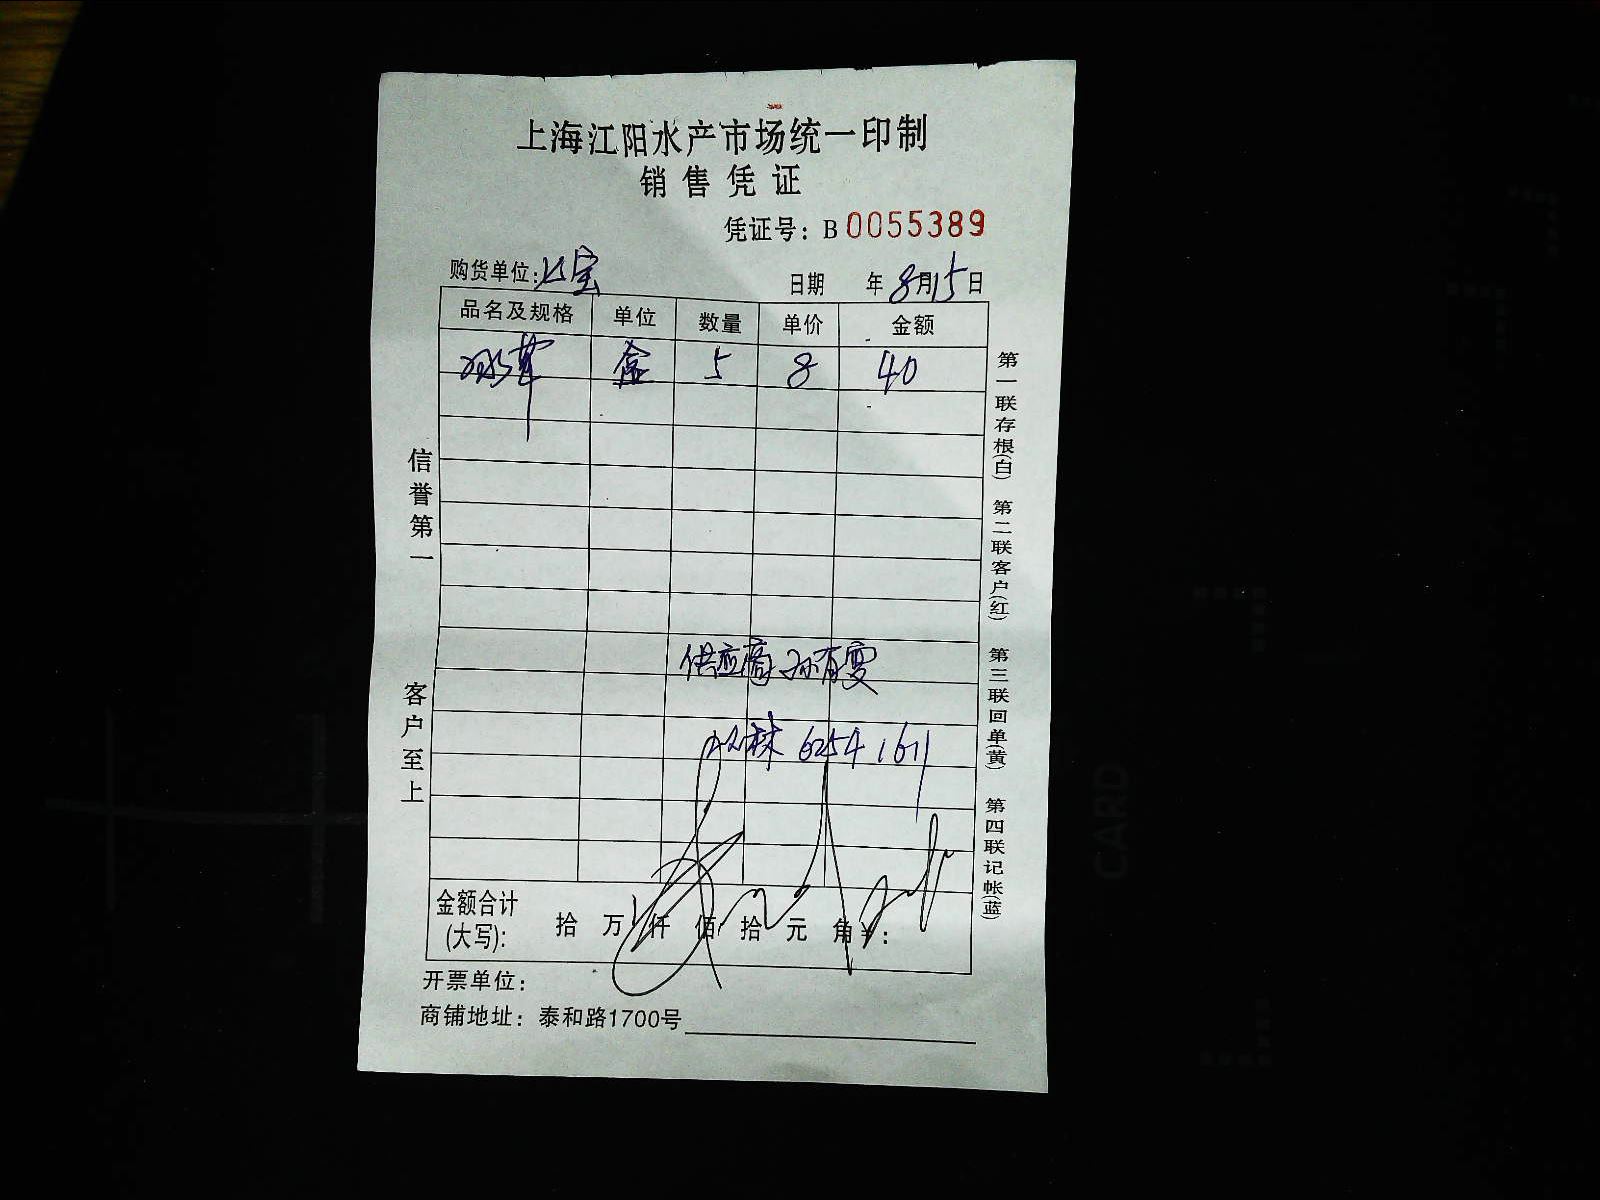 上海江阳水产市场统一印制
销售凭证
凭证号：B 0055389
购货单位: 宝
日期 年 8月15日
品名及规格 单位 数量 单价 金额
盒 5 8 40
信誉第一
客户至上
第一联存根(白) 第二联客户(红) 第三联回单(黄) 第四联记帐(蓝)
供应商 孙有雯
林 6254 1611
金额合计
(大写): 拾 万 仟 佰 拾 元 角 ¥:
开票单位：
商铺地址：泰和路1700号